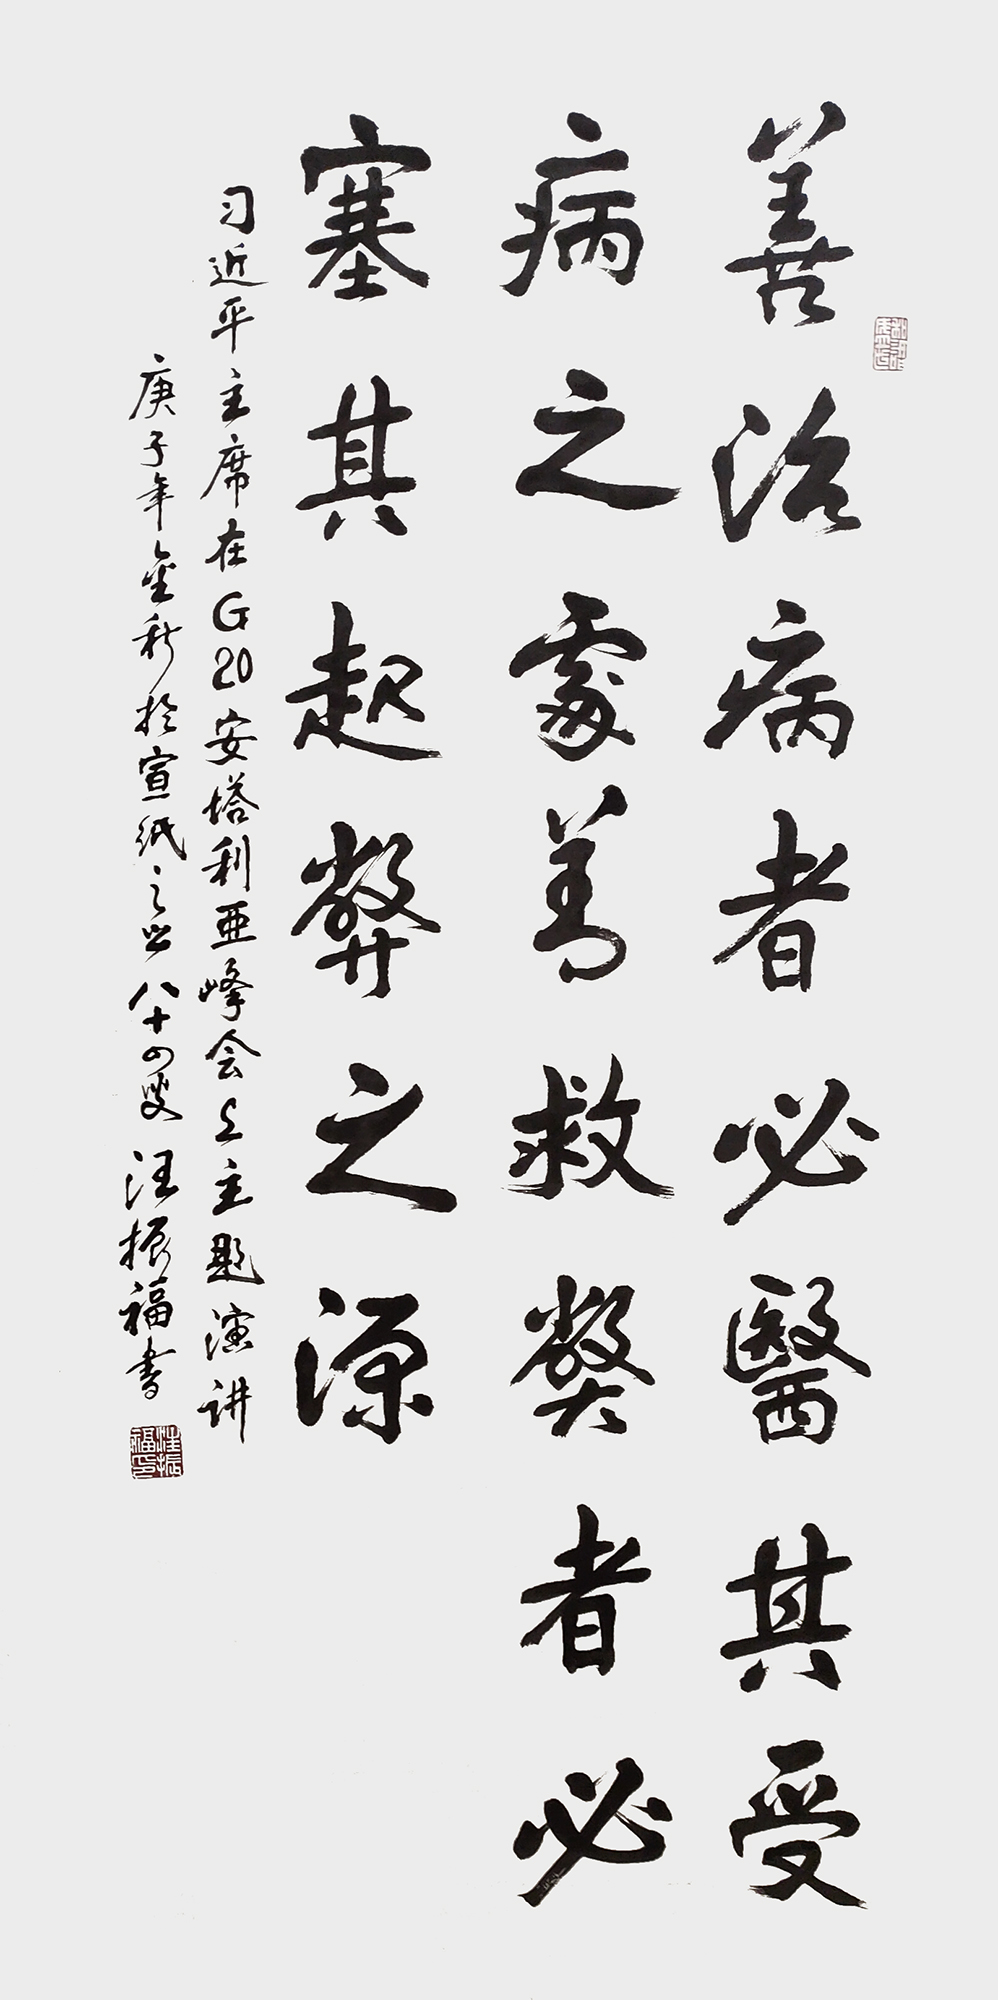 善治病者必醫其受
病之處善救獘者必
塞其起弊之源
习近平主席在G20安塔利亚峰会上主题演讲
庚子年金秋於宣纸之乡八十四叟汪振福書
汪振福印